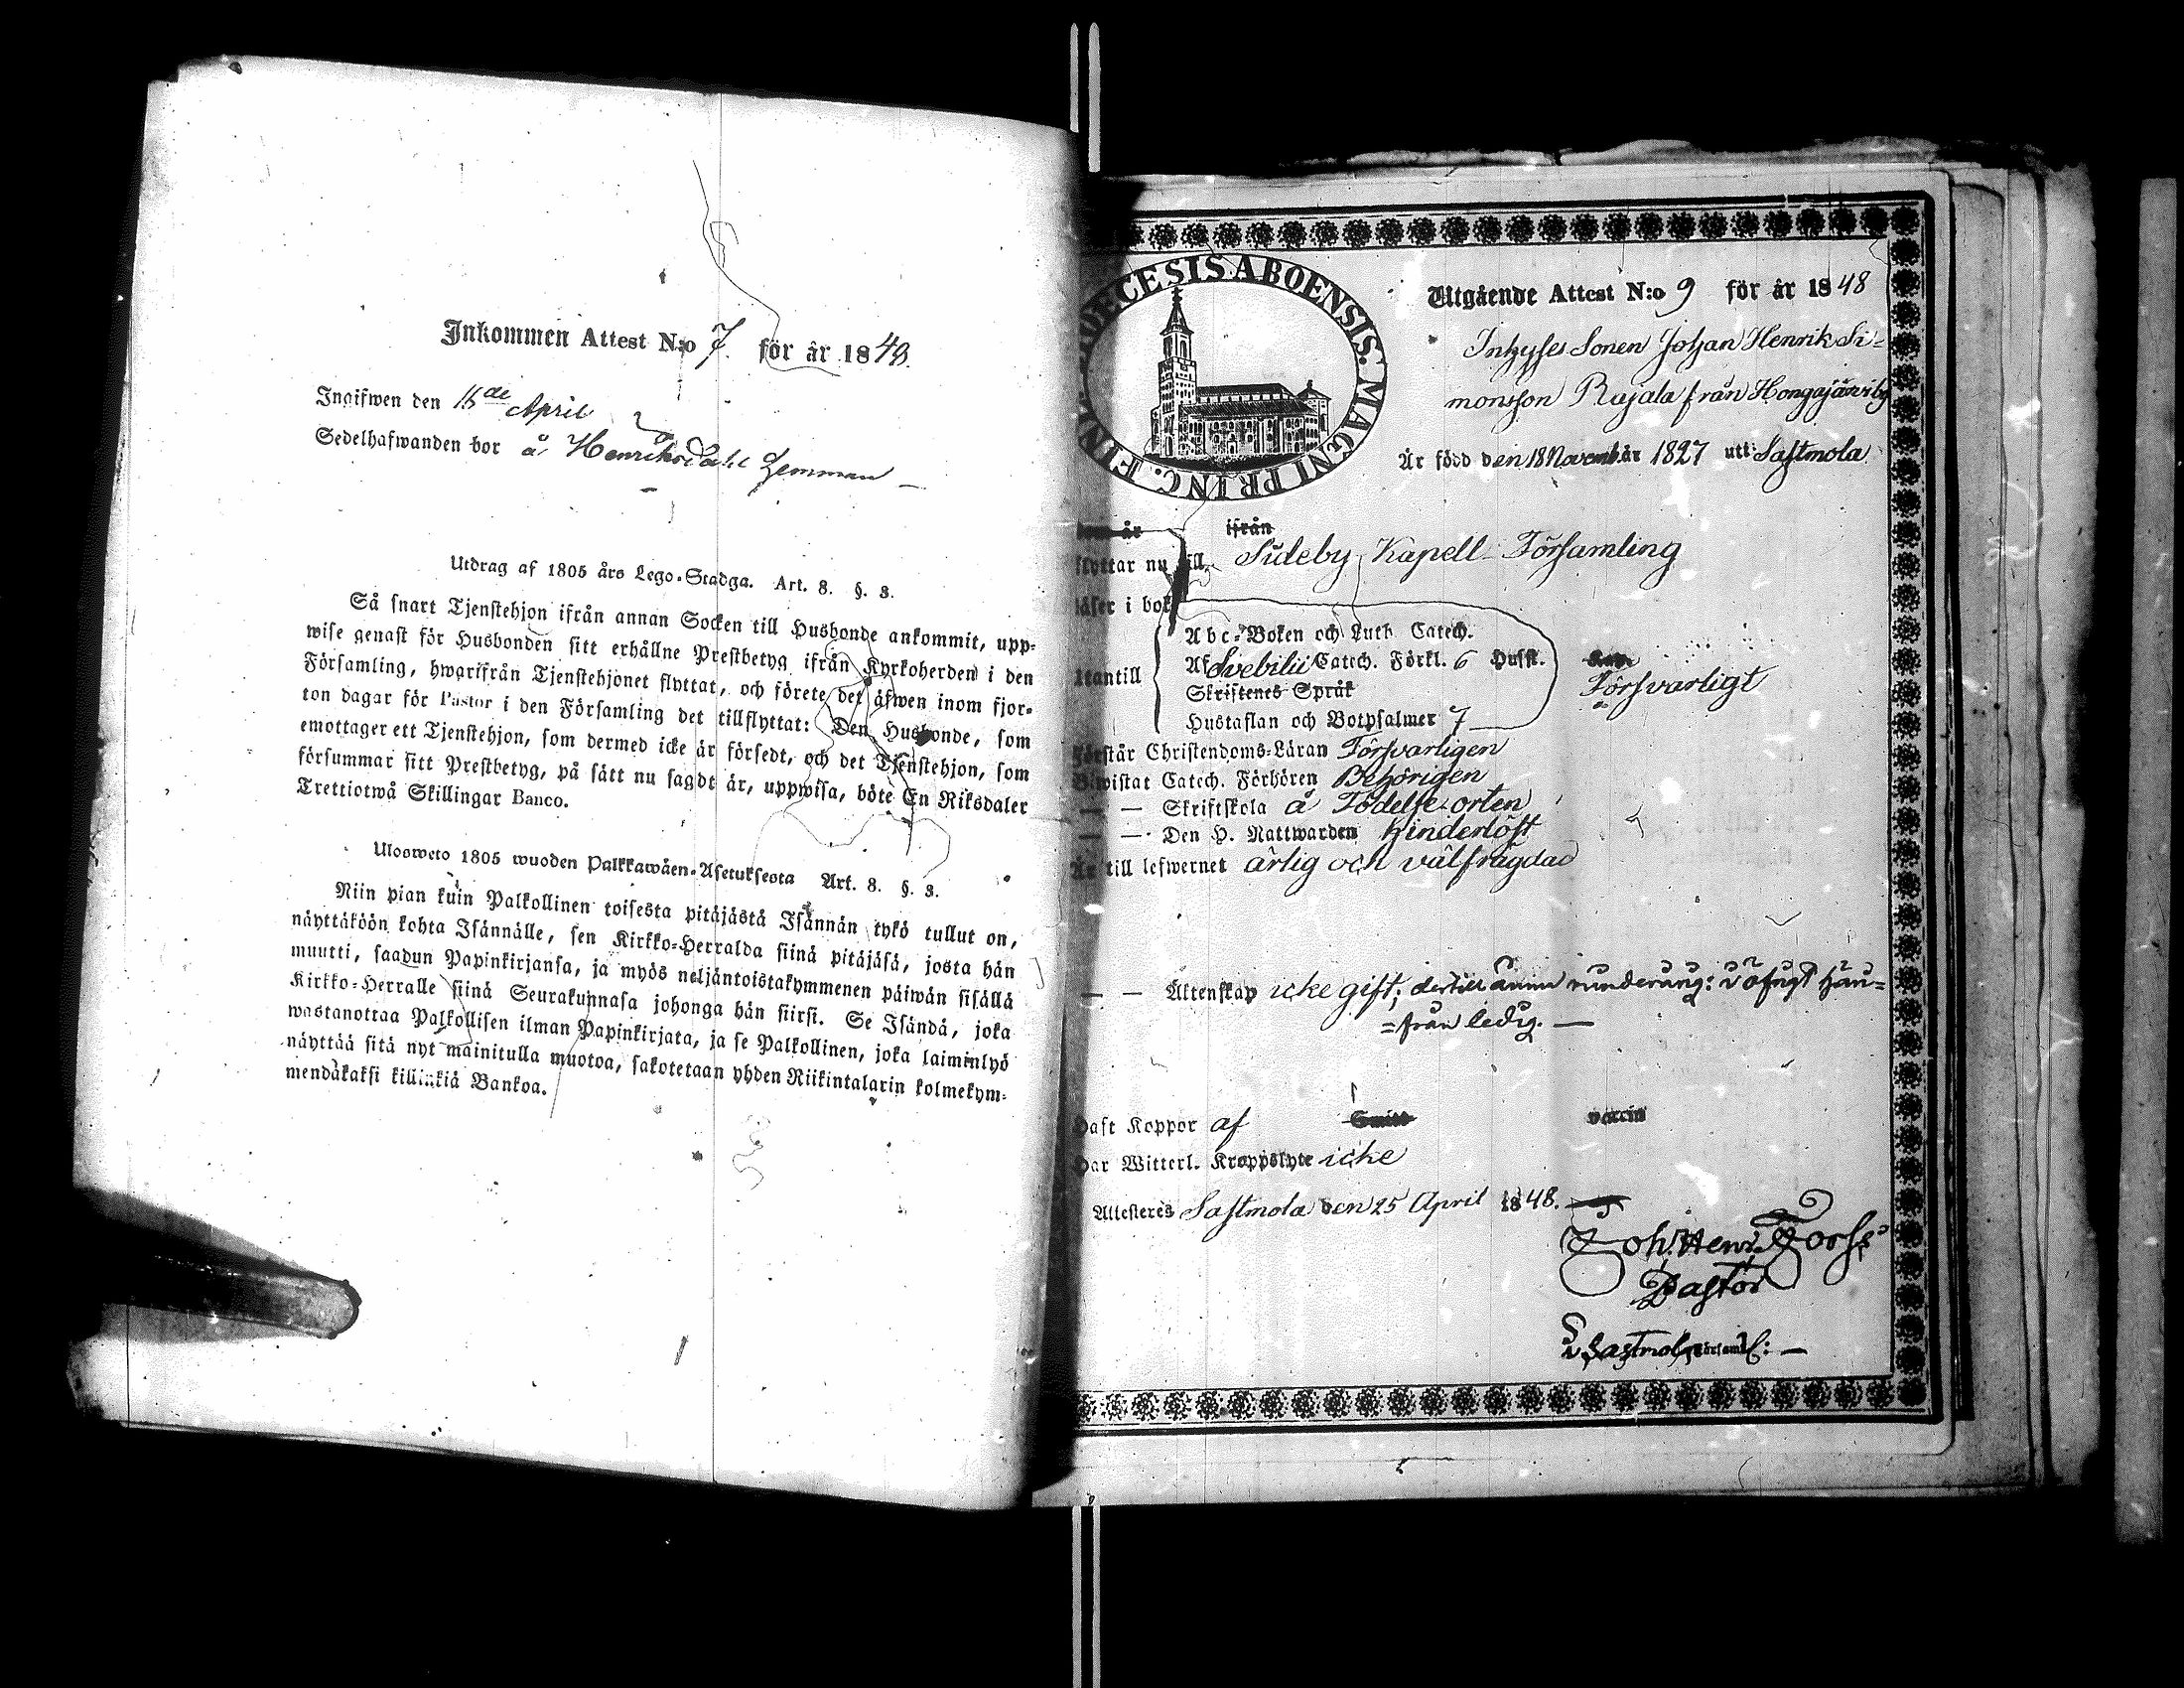 Inkommen Attest N:o 7 för år 1848.
Ingifwen den 16de April
Sedelhafwanden bor å Henriksdahl hemman
Utdrag af 1805 års Lego-Stadga. Art. 8. §. 3.
Så snart Tjenstehjon ifrån annan Socken till Husbonde ankommit, upp-
wise genast för Husbonden sitt erhållne Prestbetyg ifrån Kyrkoherden i den
Församling, hwarifrån Tjenstehjonet flyttat, och förete det äfwen inom fjor-
ton dagar för Pastor i den Församling det tillflyttat: Den Husbonde, som
emottager ett Tjenstehjon, som dermed icke är försedt, och det Tjenstehjon, som
försummar sitt Prestbetyg, på sätt nu sagdt är, uppwisa, böte En Riksdaler
Trettiotwå Skillingar Banco.
Ulosweto 1805 wuoden Palkkawäen-Asetuksesta Art. 8. §. 3.
Niin pian kuin Palkollinen toisesta pitäjästä Isännän tykö tullut on,
näyttäköön kohta Isännälle, sen Kirkko-Herralda siinä pitäjäsä, josta hän
muutti, saadun Papinkirjansa, ja myös neljäntoistakymmenen päiwän sisällä
Kirkko-Herralle siinä Seurakunnasa johonga hän siirsi. Se Isändä, joka
wastanottaa Palkollisen ilman Papinkirjata, ja se Palkollinen, joka laiminlyö
näyttää sitä nyt mainitulla muotoa, sakotetaan yhden Riikintalarin kolmekym-
mendäkaksi killinkiä Bankoa.
DIOECESIS ABOENSIS. MAGNI PRINC. FINL
Utgående Attest N:o 9 för år 1848
Inhyses Sonen Johan Henrik Si-
monsson Rajala från Hongajärvi by
Är född den 18 Novemb. år 1827 uti Sastmola
kom år ifrån
flyttar nu till Sideby Kapell Församling
läser i bok
Abc-Boken och Luth. Catech.
Af Svebilii Catech. Förkl. 6 Hufst.
Utantill
Skriftenes Språk
Försvarligt
Hustaflan och Botpsalmer 7
Förstår Christendoms-Läran Försvarligen
Biwistat Catech. Förhören Behörigen
— — Skriftskola å Födelse orten
— — Den H. Nattwarden hinderlöst
Är till lefwernet ärlig och välfrägdad
— — Äktenskap icke gift; dertill
=från ledig. —
Haft Koppor af Smitt vaccin
Har Witterl. Kroppslyte icke
Attesteres Sastmola den 25 April 1848.
Joh. Henr. Forss
Pastor
i Sastmola Församl: —